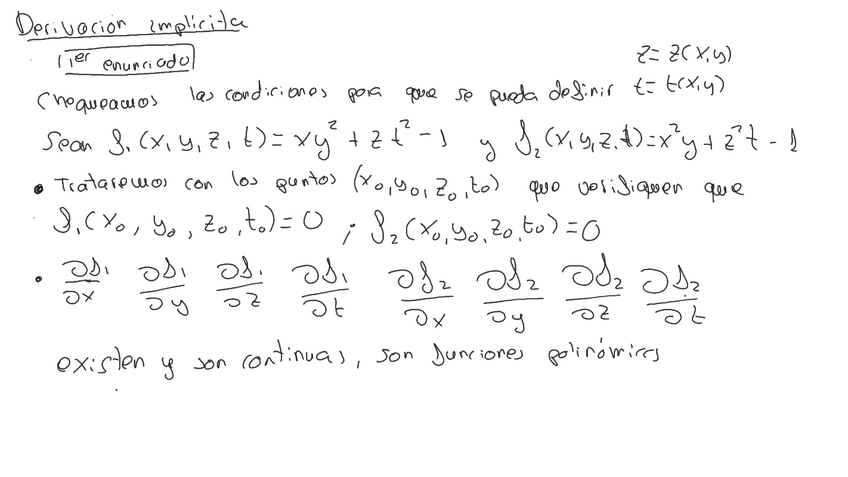 Derivación implícita
1er enunciado
z = z(x,y)
Chequeamos las condiciones para que se pueda definir t = t(x,y)
Sean f₁(x,y,z,t) = xy² + zt² - 1 y f₂(x,y,z,t) = x²y + z²t - 1
• Trataremos con los puntos (x₀,y₀,z₀,t₀) que verifiquen que
f₁(x₀,y₀,z₀,t₀) = 0 ; f₂(x₀,y₀,z₀,t₀) = 0
• ∂f₁/∂x ∂f₁/∂y ∂f₁/∂z ∂f₁/∂t ∂f₂/∂x ∂f₂/∂y ∂f₂/∂z ∂f₂/∂t
existen y son continuas, son funciones polinómicas